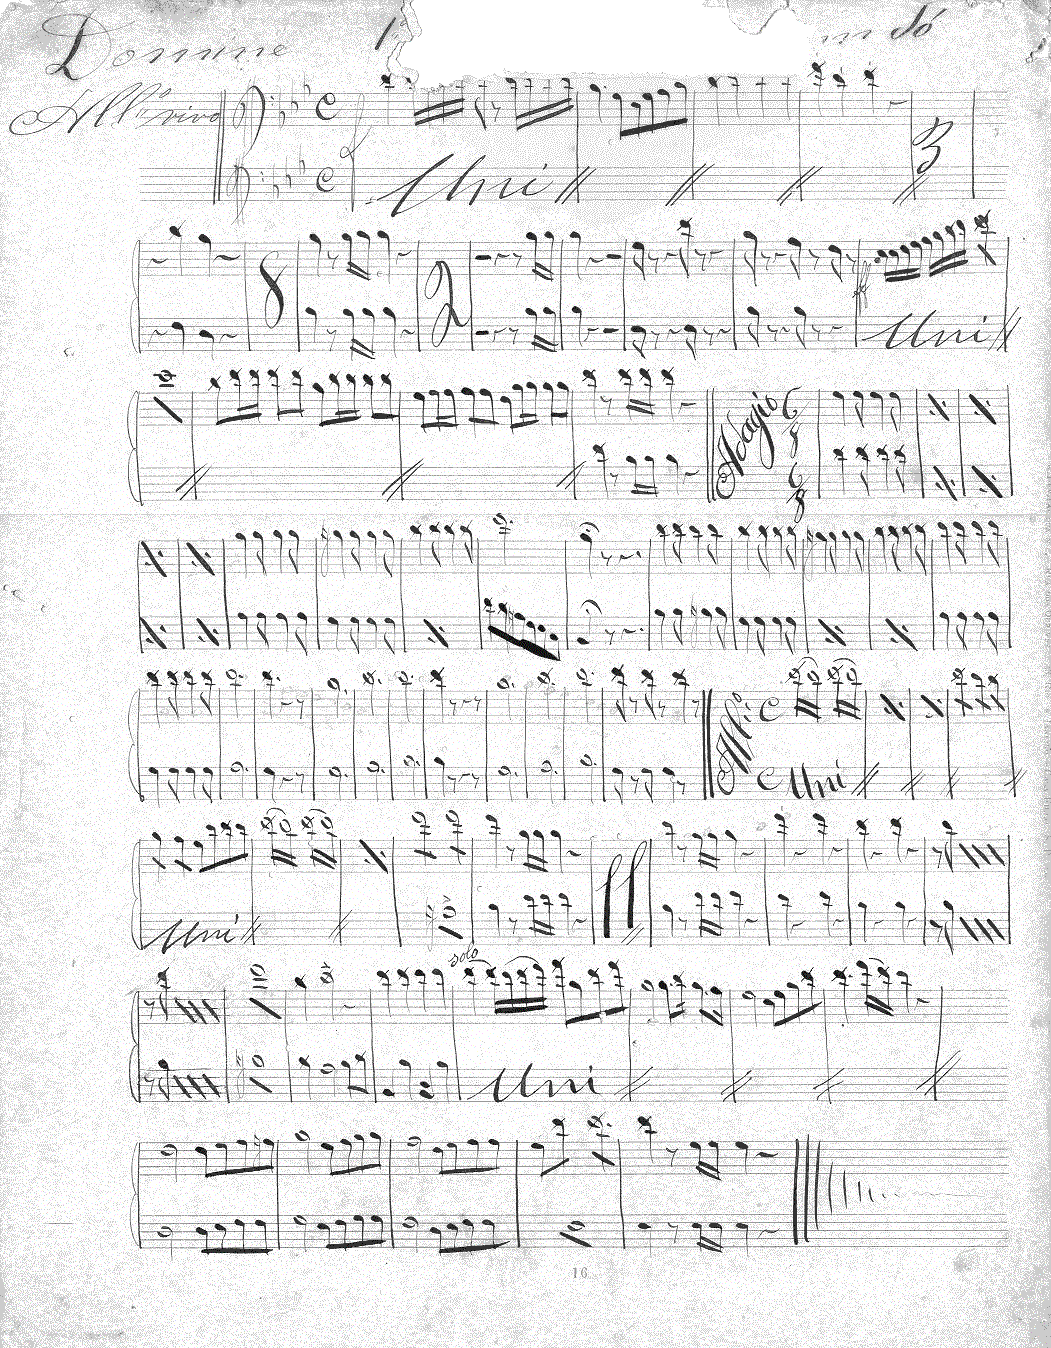 Domine 1 in Dó
All.º vivo
C f
Uni
C
3
8 2 ff
Uni
Adagio 6 8
6 8
All.º C
C Uni
Uni ff
solo
Uni
16